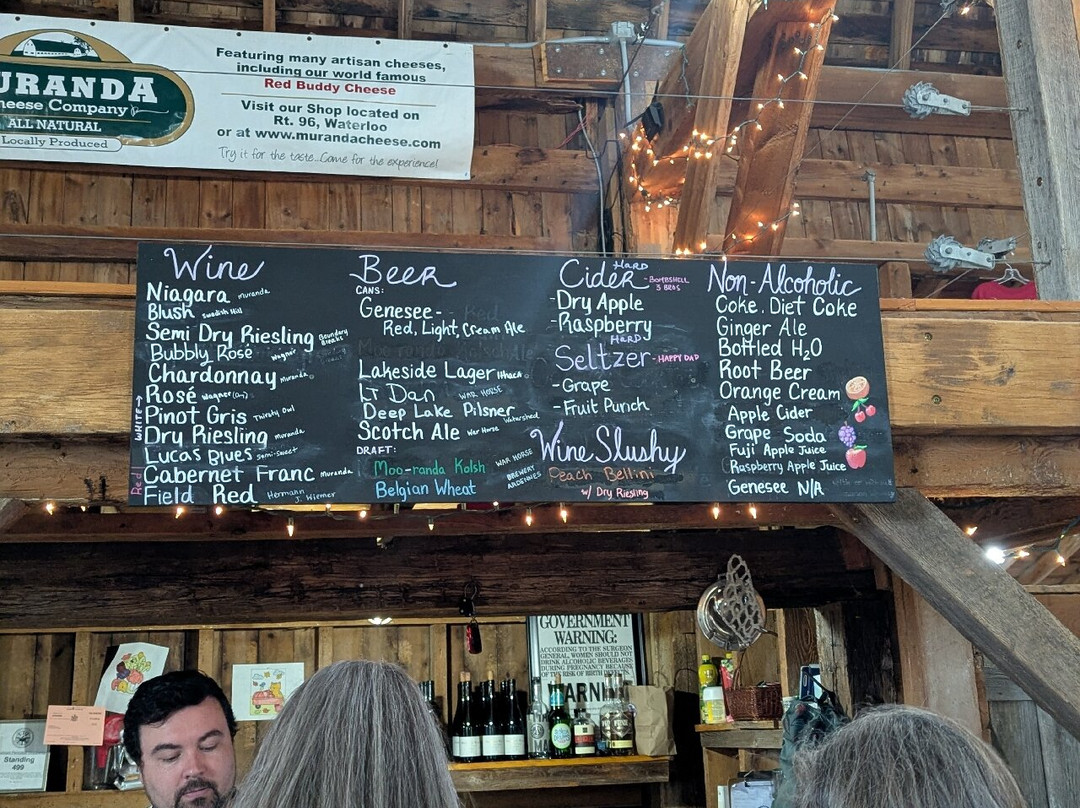 MURANDA
Cheese Company
ALL NATURAL
Locally Produced
Featuring many artisan cheeses,
including our world famous
Red Buddy Cheese
Visit our Shop located on
Rt. 96, Waterloo
or at www.murandacheese.com
Try it for the taste...Come for the experience!
Wine
Niagara Muranda
Blush Swedish Hill
Semi Dry Riesling Boundary Breaks
Bubbly Rosé Wagner
Chardonnay Muranda
Rosé Wagner
Pinot Gris Thirsty Owl
Dry Riesling Muranda
Lucas Blues Semi-sweet
WHITE→
Cabernet Franc Muranda
Field Red Hermann J. Wiemer
Red
Beer
CANS:
Genesee-
Red, Light, Cream Ale
Lakeside Lager Ithaca
Lt Dan WAR HORSE
Deep Lake Pilsner Watershed
Scotch Ale War Horse
DRAFT:
Moo-randa Kolsh WAR HORSE
Belgian Wheat BREWERY ARDENNES
Hard
Cider - BOMBSHELL
3 BROS
-Dry Apple
-Raspberry
HARD
Seltzer - HAPPY DAD
-Grape
-Fruit Punch
Wine Slushy
Peach Bellini
w/ Dry Riesling
Non-Alcoholic
Coke, Diet Coke
Ginger Ale
Bottled H₂O
Root Beer
Orange Cream
Apple Cider
Grape Soda
Fuji Apple Juice
Raspberry Apple Juice
Genesee N/A
GOVERNMENT
WARNING:
ACCORDING TO THE SURGEON
GENERAL, WOMEN SHOULD NOT
DRINK ALCOHOLIC BEVERAGES
DURING PREGNANCY BECAUSE
OF THE RISK OF BIRTH DEFECTS
Standing
499